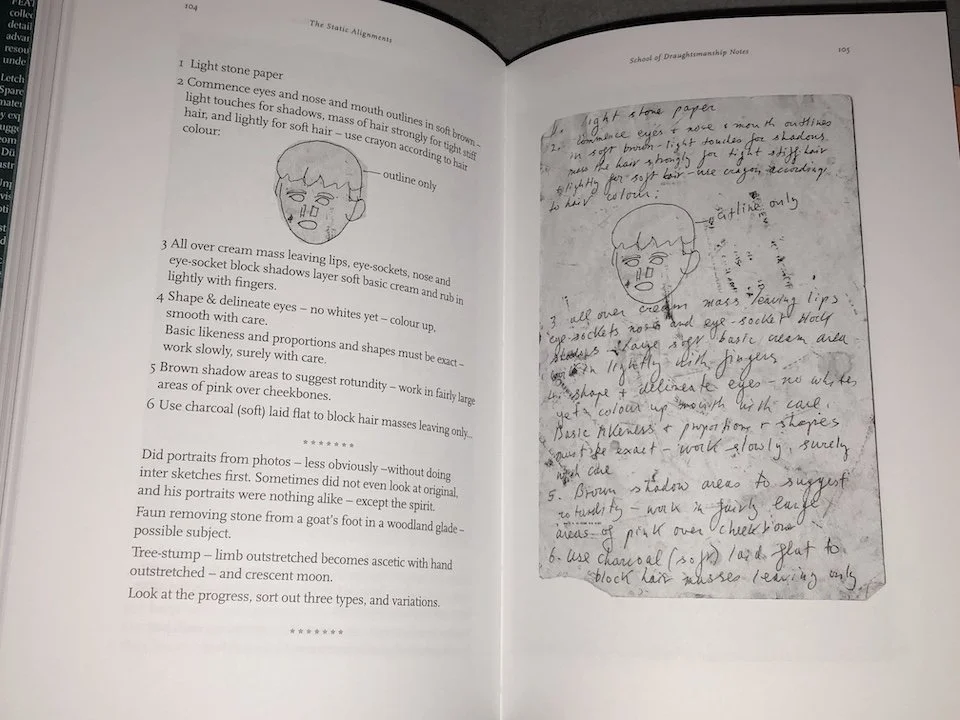 104
The Static Alignments
1 Light stone paper
2 Commence eyes and nose and mouth outlines in soft brown –
light touches for shadows, mass of hair strongly for tight stiff
hair, and lightly for soft hair – use crayon according to hair
colour:
outline only
3 All over cream mass leaving lips, eye-sockets, nose and
eye-socket block shadows layer soft basic cream and rub in
lightly with fingers.
4 Shape & delineate eyes – no whites yet – colour up,
smooth with care.
Basic likeness and proportions and shapes must be exact –
work slowly, surely with care.
5 Brown shadow areas to suggest rotundity – work in fairly large
areas of pink over cheekbones.
6 Use charcoal (soft) laid flat to block hair masses leaving only...
*******
Did portraits from photos – less obviously –without doing
inter sketches first. Sometimes did not even look at original,
and his portraits were nothing alike – except the spirit.
Faun removing stone from a goat's foot in a woodland glade –
possible subject.
Tree-stump – limb outstretched becomes ascetic with hand
outstretched – and crescent moon.
Look at the progress, sort out three types, and variations.
*******
School of Draughtsmanship Notes
105
1. light stone paper
2. commence eyes + nose + mouth outlines
in soft brown – light touches for shadows
mass the hair strongly for tight stiff hair
+ lightly for soft hair – use crayon according
to hair colour:
outline only
3 all over cream mass leaving lips
eye-sockets nose and eye-socket block
shadows large soft basic cream area
in lightly with fingers
4. shape + delineate eyes – no whites
yet – colour up smooth with care.
Basic likeness + proportions + shapes
must be exact – work slowly, surely
with care
5. Brown shadow areas to suggest
rotundity – work in fairly large
areas of pink over cheekbone
6. Use charcoal (soft) laid flat to
block hair masses leaving only